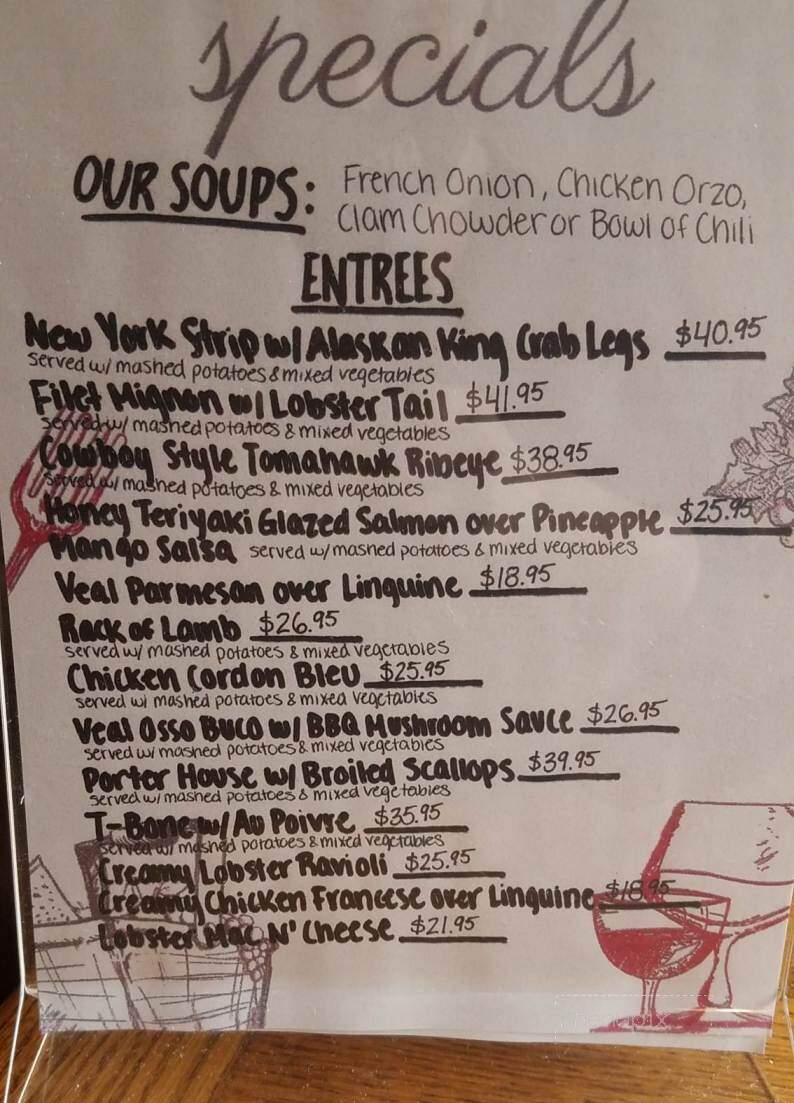 specials
OUR SOUPS: French Onion, Chicken Orzo,
Clam Chowder or Bowl of Chili
ENTREES
New York Strip w/ Alaskan King Crab Legs $40.95
served w/ mashed potatoes & mixed vegetables
Filet Mignon w/ Lobster Tail $41.95
served w/ mashed potatoes & mixed vegetables
Cowboy Style Tomahawk Ribeye $38.95
served w/ mashed potatoes & mixed vegetables
Honey Teriyaki Glazed Salmon over Pineapple $25.95
Mango Salsa served w/ mashed potatoes & mixed vegetables
Veal Parmesan over Linguine $18.95
Rack of Lamb $26.95
served w/ mashed potatoes & mixed vegetables
Chicken Cordon Bleu $25.95
served w/ mashed potatoes & mixed vegetables
Veal Osso Buco w/ BBQ Mushroom Sauce $26.95
served w/ mashed potatoes & mixed vegetables
Porter House w/ Broiled Scallops $39.95
served w/ mashed potatoes & mixed vegetables
T-Bone w/ Au Poivre $35.95
served w/ mashed potatoes & mixed vegetables
Creamy Lobster Ravioli $25.95
Creamy Chicken Francese over Linguine $18.95
Lobster Mac N' Cheese $21.95